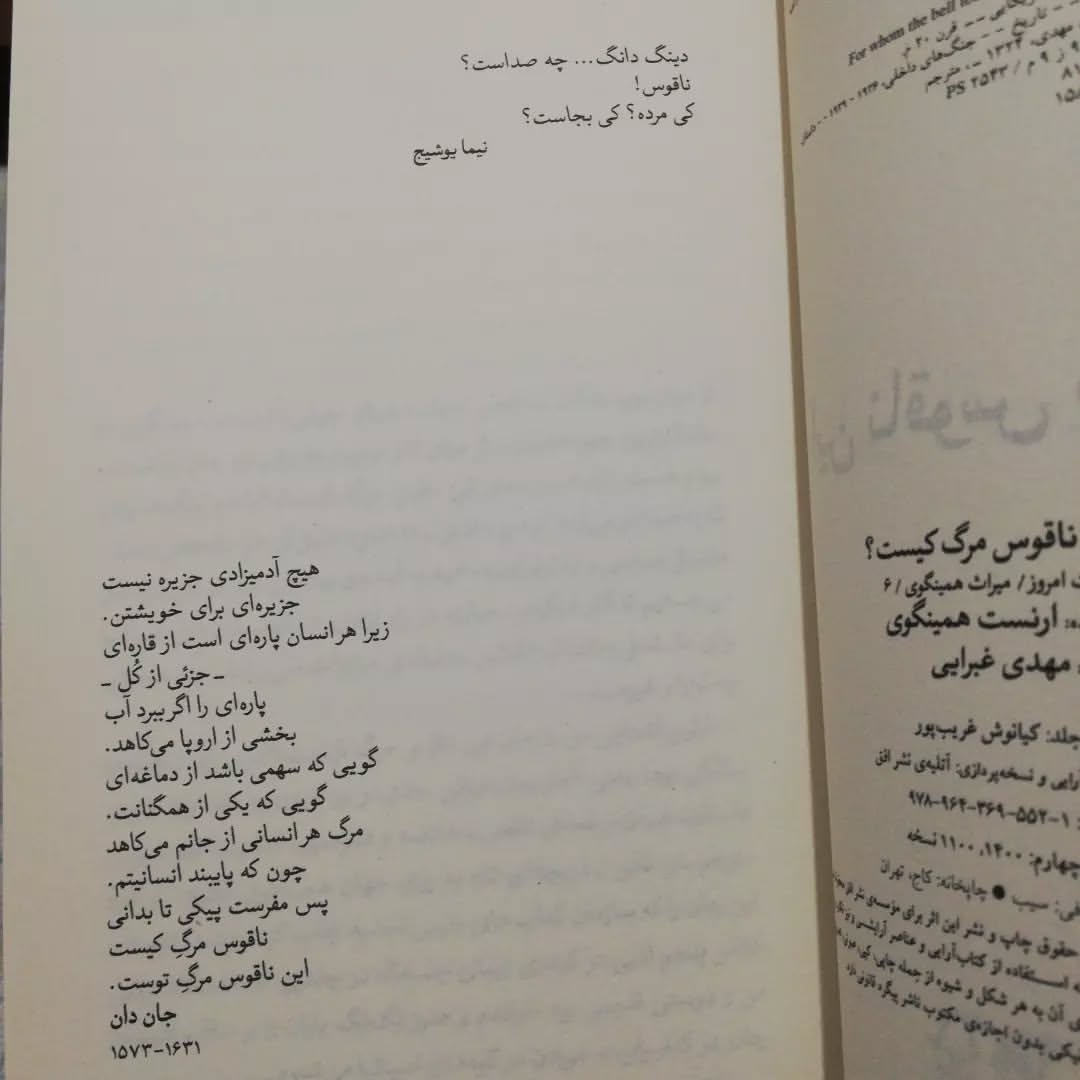 دینگ دانگ... چه صداست؟
ناقوس!
کی مرده؟ کی بجاست؟
نیما یوشیج
هیچ آدمیزادی جزیره نیست
جزیره‌ای برای خویشتن.
زیرا هر انسان پاره‌ای است از قاره‌ای
ـ جزئی از کُل ـ
پاره‌ای را اگر ببرد آب
بخشی از اروپا می‌کاهد.
گویی که سهمی باشد از دماغه‌ای
گویی که یکی از همگنانت.
مرگ هر انسانی از جانم می‌کاهد
چون که پایبند انسانیتم.
پس مفرست پیکی تا بدانی
ناقوس مرگِ کیست
این ناقوس مرگِ توست.
جان دان
۱۵۷۳-۱۶۳۱
For whom the bell
قرن ۲۰ م.
تاریخ -- جنگ‌های داخلی، ۱۹۳۶ - ۱۹۳۹ --
مهدی، ۱۳۲۴ - ، مترجم
PS ۳۵۴۳ / م ۹ ز
ناقوس مرگ کیست؟
امروز / میراث همینگوی / ۶
ارنست همینگوی
مهدی غبرایی
جلد: کیانوش غریب‌پور
آرایی و نسخه‌پردازی: آتلیه‌ی نشر افق
۹۷۸-۹۶۴-۳۶۹-۵۵۲-۱
چهارم: ۱۴۰۰، ۱۱۰۰ نسخه
سیب ● چاپخانه: کاج، تهران
حقوق چاپ و نشر این اثر برای مؤسسه‌ی نشر افق
استفاده از کتاب‌آرایی و عناصر آرایشی
آن به هر شکل و شیوه از جمله چاپی، کپی،
بدون اجازه‌ی مکتوب ناشر پیگرد قانونی دارد